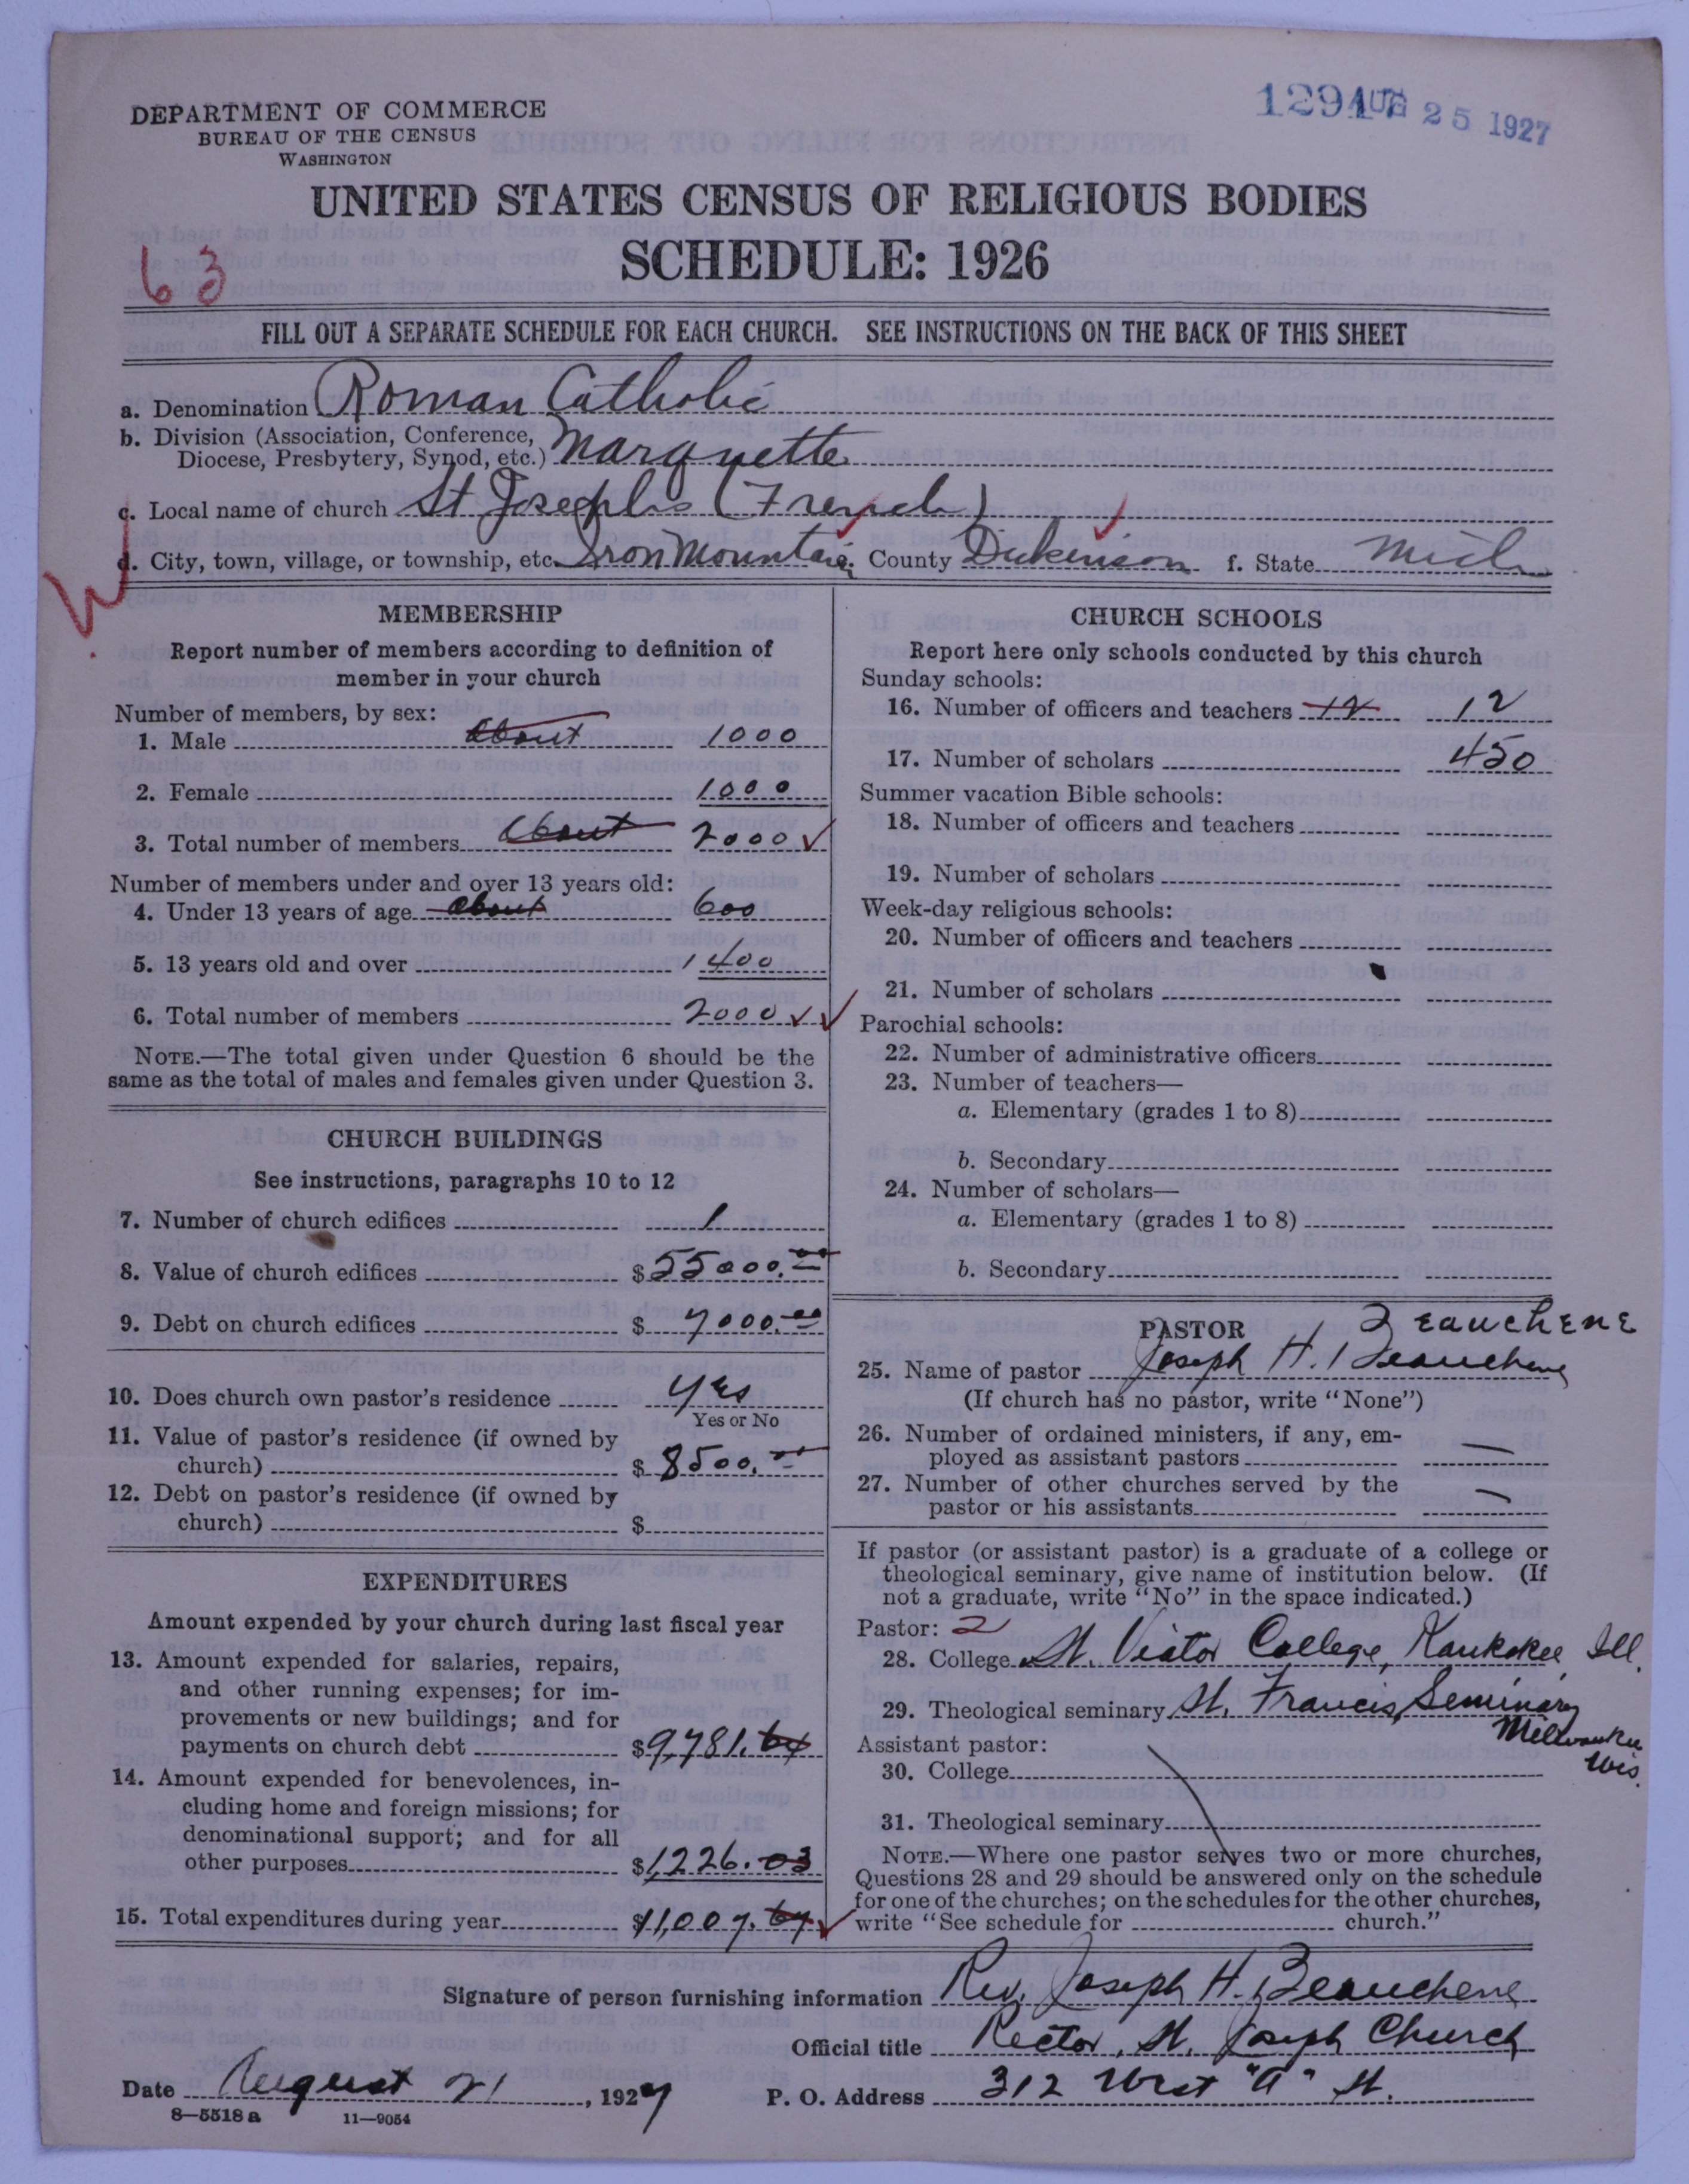 DEPARTMENT OF COMMERCE
BUREAU OF THE CENSUS
WASHINGTON
AUG 25 1927
UNITED STATES CENSUS OF RELIGIOUS BODIES
SCHEDULE: 1926
63
FILL OUT A SEPARATE SCHEDULE FOR EACH CHURCH. SEE INSTRUCTIONS ON THE BACK OF THIS SHEET
a. Denomination Roman Catholic
b. Division (Association, Conference,
Diocese, Presbytery, Synod, etc.) Marquette
c. Local name of church St Josephs (French)
d. City, town, village, or township, etc. Iron Mountain County Dickinson f. State Mich
MEMBERSHIP
Report number of members according to definition of
member in your church
Number of members, by sex:
1. Male about 1000
2. Female 1000
3. Total number of members about 2000
Number of members under and over 13 years old:
4. Under 13 years of age about 600
5. 13 years old and over 1400
6. Total number of members 2000
NOTE.—The total given under Question 6 should be the
same as the total of males and females given under Question 3.
CHURCH BUILDINGS
See instructions, paragraphs 10 to 12
7. Number of church edifices 1
8. Value of church edifices $55000.00
9. Debt on church edifices $7000.00
10. Does church own pastor's residence Yes
Yes or No
11. Value of pastor's residence (if owned by
church) $8500.00
12. Debt on pastor's residence (if owned by
church) $
EXPENDITURES
Amount expended by your church during last fiscal year
13. Amount expended for salaries, repairs,
and other running expenses; for im-
provements or new buildings; and for
payments on church debt $9,781.64
14. Amount expended for benevolences, in-
cluding home and foreign missions; for
denominational support; and for all
other purposes $1,226.03
15. Total expenditures during year $11,007.67
CHURCH SCHOOLS
Report here only schools conducted by this church
Sunday schools:
16. Number of officers and teachers 12 12
17. Number of scholars 450
Summer vacation Bible schools:
18. Number of officers and teachers
19. Number of scholars
Week-day religious schools:
20. Number of officers and teachers
21. Number of scholars
Parochial schools:
22. Number of administrative officers
23. Number of teachers—
a. Elementary (grades 1 to 8)
b. Secondary
24. Number of scholars—
a. Elementary (grades 1 to 8)
b. Secondary
PASTOR BEAUCHENE
25. Name of pastor Joseph H. Beauchene
(If church has no pastor, write "None")
26. Number of ordained ministers, if any, em-
ployed as assistant pastors —
27. Number of other churches served by the
pastor or his assistants —
If pastor (or assistant pastor) is a graduate of a college or
theological seminary, give name of institution below. (If
not a graduate, write "No" in the space indicated.)
Pastor: 2
28. College St. Viator College, Kankakee, Ill.
29. Theological seminary St. Francis Seminary
Milwaukee
Wis.
Assistant pastor:
30. College
31. Theological seminary
NOTE.—Where one pastor serves two or more churches,
Questions 28 and 29 should be answered only on the schedule
for one of the churches; on the schedules for the other churches,
write "See schedule for church."
Signature of person furnishing information Rev. Joseph H. Beauchene
Official title Rector, St. Joseph Church
Date August 21, 1927 P. O. Address 312 West "A" St.
8—5518 a 11—9054